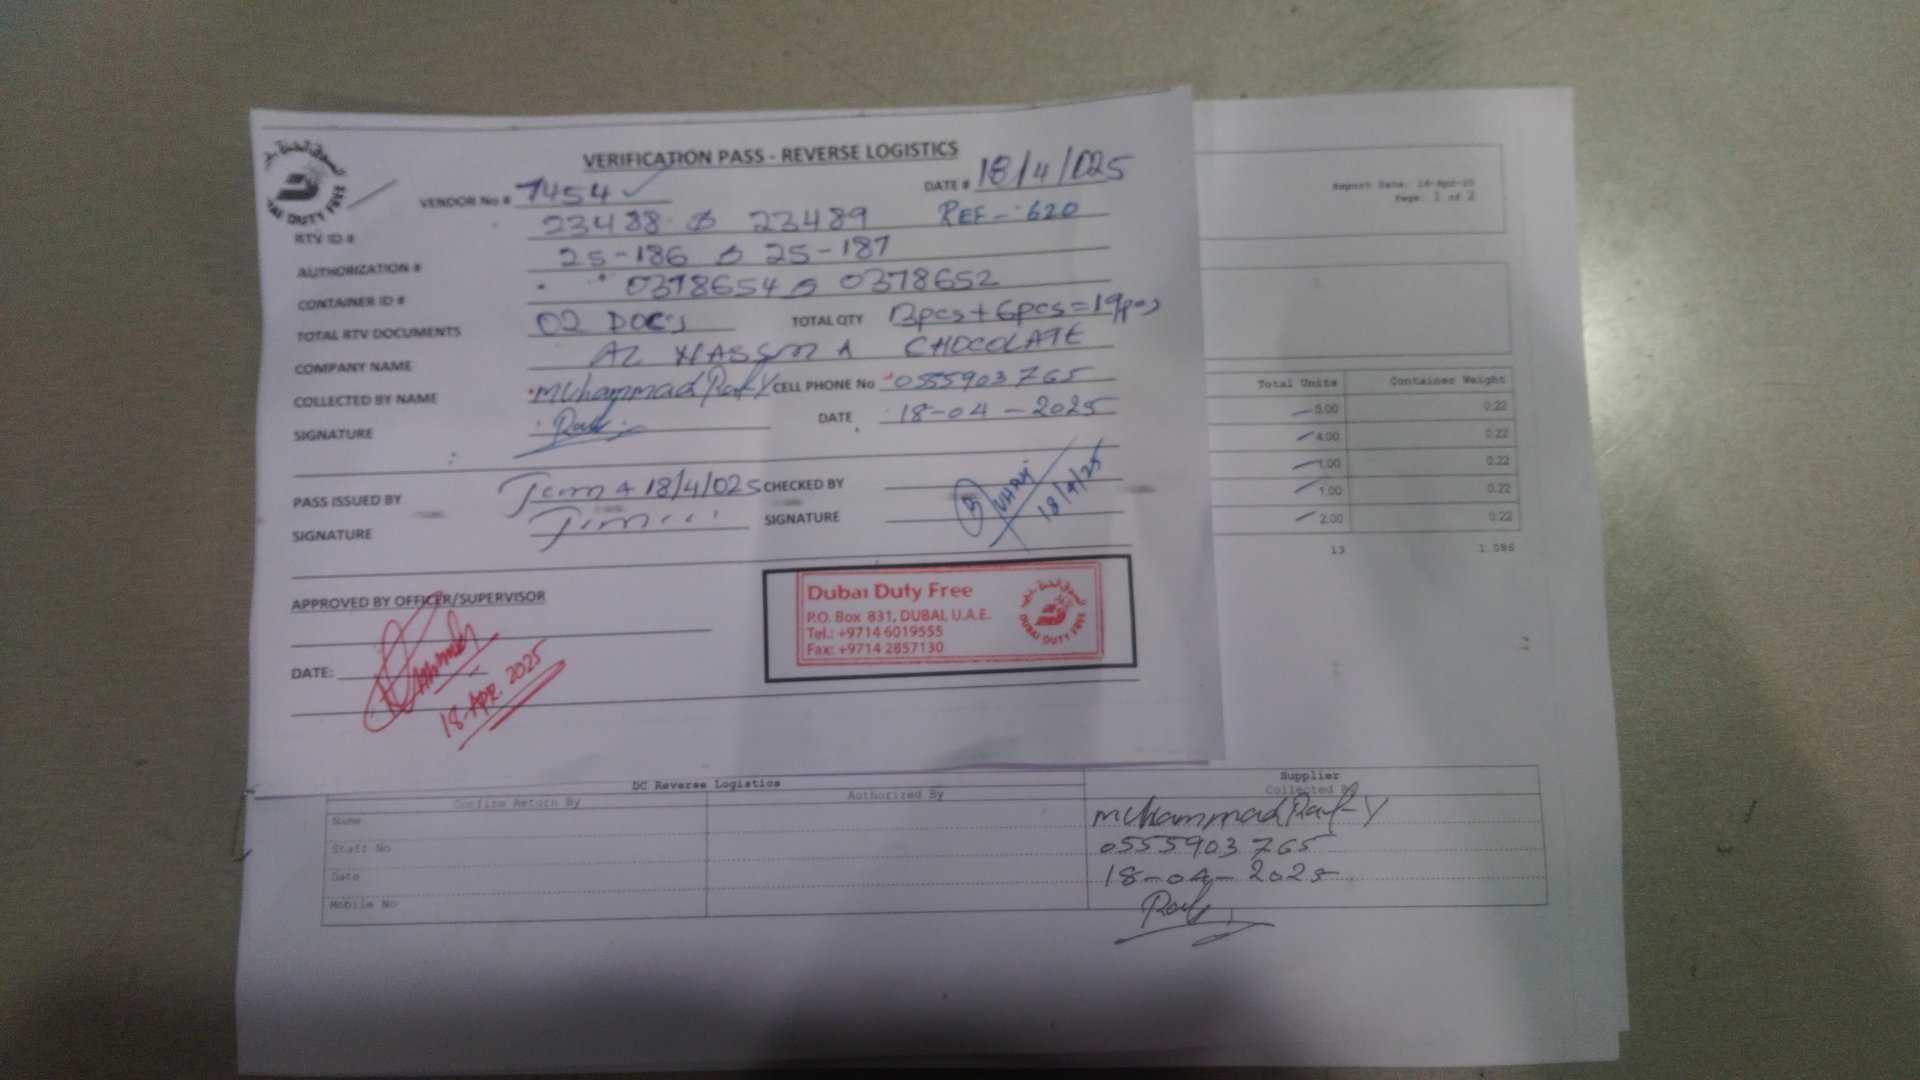 VERIFICATION PASS - REVERSE LOGISTICS
VENDOR No # 7454 DATE # 18/4/025
RTV ID # 23488 & 23489 REF - 620
AUTHORIZATION # 25-186 & 25-187
CONTAINER ID # 0378654 & 0378652
TOTAL RTV DOCUMENTS 02 DOC's TOTAL QTY 13pcs + 6pcs = 19pcs
COMPANY NAME AL CHOCOLATE
COLLECTED BY NAME Muhammad Rafy CELL PHONE No 0555903765
SIGNATURE Rafy DATE 18-04-2025
PASS ISSUED BY 18/4/025 CHECKED BY
SIGNATURE SIGNATURE
18/4/25
APPROVED BY OFFICER/SUPERVISOR
DATE:
18-Apr. 2025
Dubai Duty Free
P.O. Box 831, DUBAI, U.A.E.
Tel.: +9714 6019555
Fax: +9714 2857130
DUBAI DUTY FREE
Page: 1 of 2
Total Units Container Weight
5.00 0.22
4.00 0.22
1.00 0.22
1.00 0.22
2.00 0.22
13 1.086
DC Reverse Logistics Supplier
Confirm Return By Authorized By Collected By
Name Muhammad Rafy
Staff No 0555903765
Date 18-04-2025
Mobile No Rafy